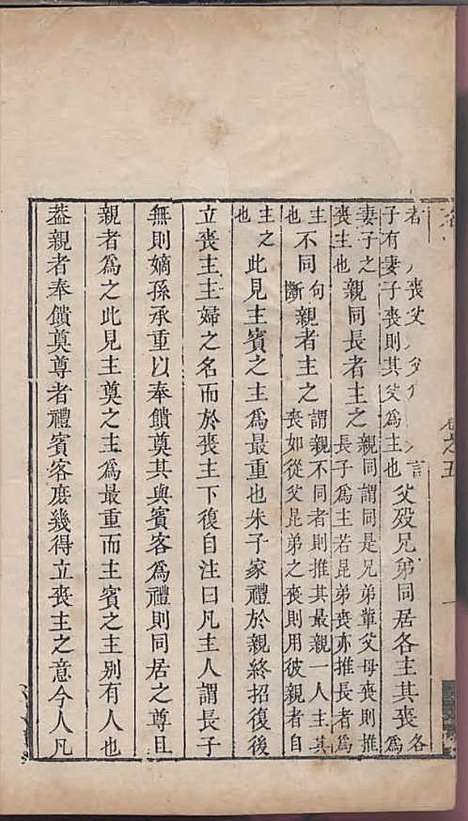 子有妻子喪則其父爲主也父歿兄弟同居各主其喪各爲
妻子之喪主也親同長者主之親同謂同是兄弟輩父母喪則推長子爲主若昆弟喪亦推長者爲
主也不同句斷親者主之謂親不同者則推其最親一人主其喪如從父昆弟之喪則用彼親者自
主之也此見主賓之主爲最重也朱子家禮於親終招復後
立喪主主婦之名而於喪主下復自注曰凡主人謂長子
無則嫡孫承重以奉饋奠其與賓客爲禮則同居之尊且
親者爲之此見主奠之主爲最重而主賓之主别有人也
葢親者奉饋奠尊者禮賓客庶幾得立喪主之意今人凡